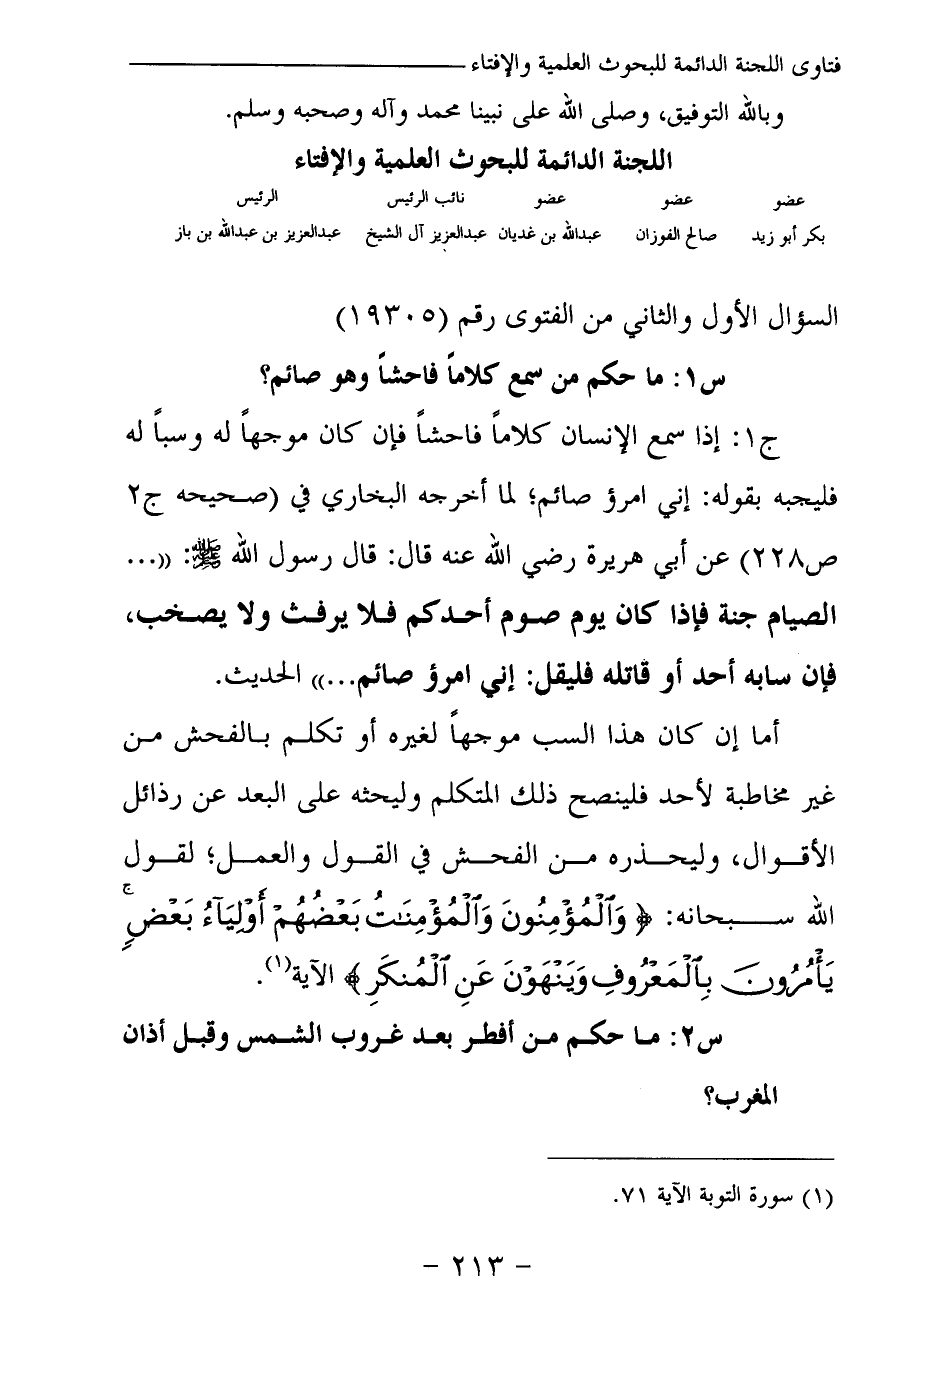 فتاوى اللجنة الدائمة للبحوث العلمية والإفتاء
وبالله التوفيق، وصلى الله على نبينا محمد وآله وصحبه وسلم.
اللجنة الدائمة للبحوث العلمية والإفتاء
عضو عضو عضو نائب الرئيس الرئيس
بكر أبو زيد صالح الفوزان عبدالله بن غديان عبدالعزيز آل الشيخ عبدالعزيز بن عبدالله بن باز
السؤال الأول والثاني من الفتوى رقم (١٩٣٠٥)
س١: ما حكم من سمع كلاماً فاحشاً وهو صائم؟
ج١: إذا سمع الإنسان كلاماً فاحشاً فإن كان موجهاً له وسباً له
فليجبه بقوله: إني امرؤ صائم؛ لما أخرجه البخاري في (صحيحه ج٢
ص٢٢٨) عن أبي هريرة رضي الله عنه قال: قال رسول الله ﷺ: ((...
الصيام جنة فإذا كان يوم صوم أحدكم فلا يرفث ولا يصخب،
فإن سابه أحد أو قاتله فليقل: إني امرؤ صائم...)) الحديث.
أما إن كان هذا السب موجهاً لغيره أو تكلم بالفحش من
غير مخاطبة لأحد فلينصح ذلك المتكلم وليحثه على البعد عن رذائل
الأقوال، وليحذره من الفحش في القول والعمل؛ لقول
الله سبحانه: ﴿ وَٱلْمُؤْمِنُونَ وَٱلْمُؤْمِنَٰتُ بَعْضُهُمْ أَوْلِيَآءُ بَعْضٍ ۚ
يَأْمُرُونَ بِٱلْمَعْرُوفِ وَيَنْهَوْنَ عَنِ ٱلْمُنكَرِ ﴾ الآية(١).
س٢: ما حكم من أفطر بعد غروب الشمس وقبل أذان
المغرب؟
(١) سورة التوبة الآية ٧١.
- ٢١٣ -